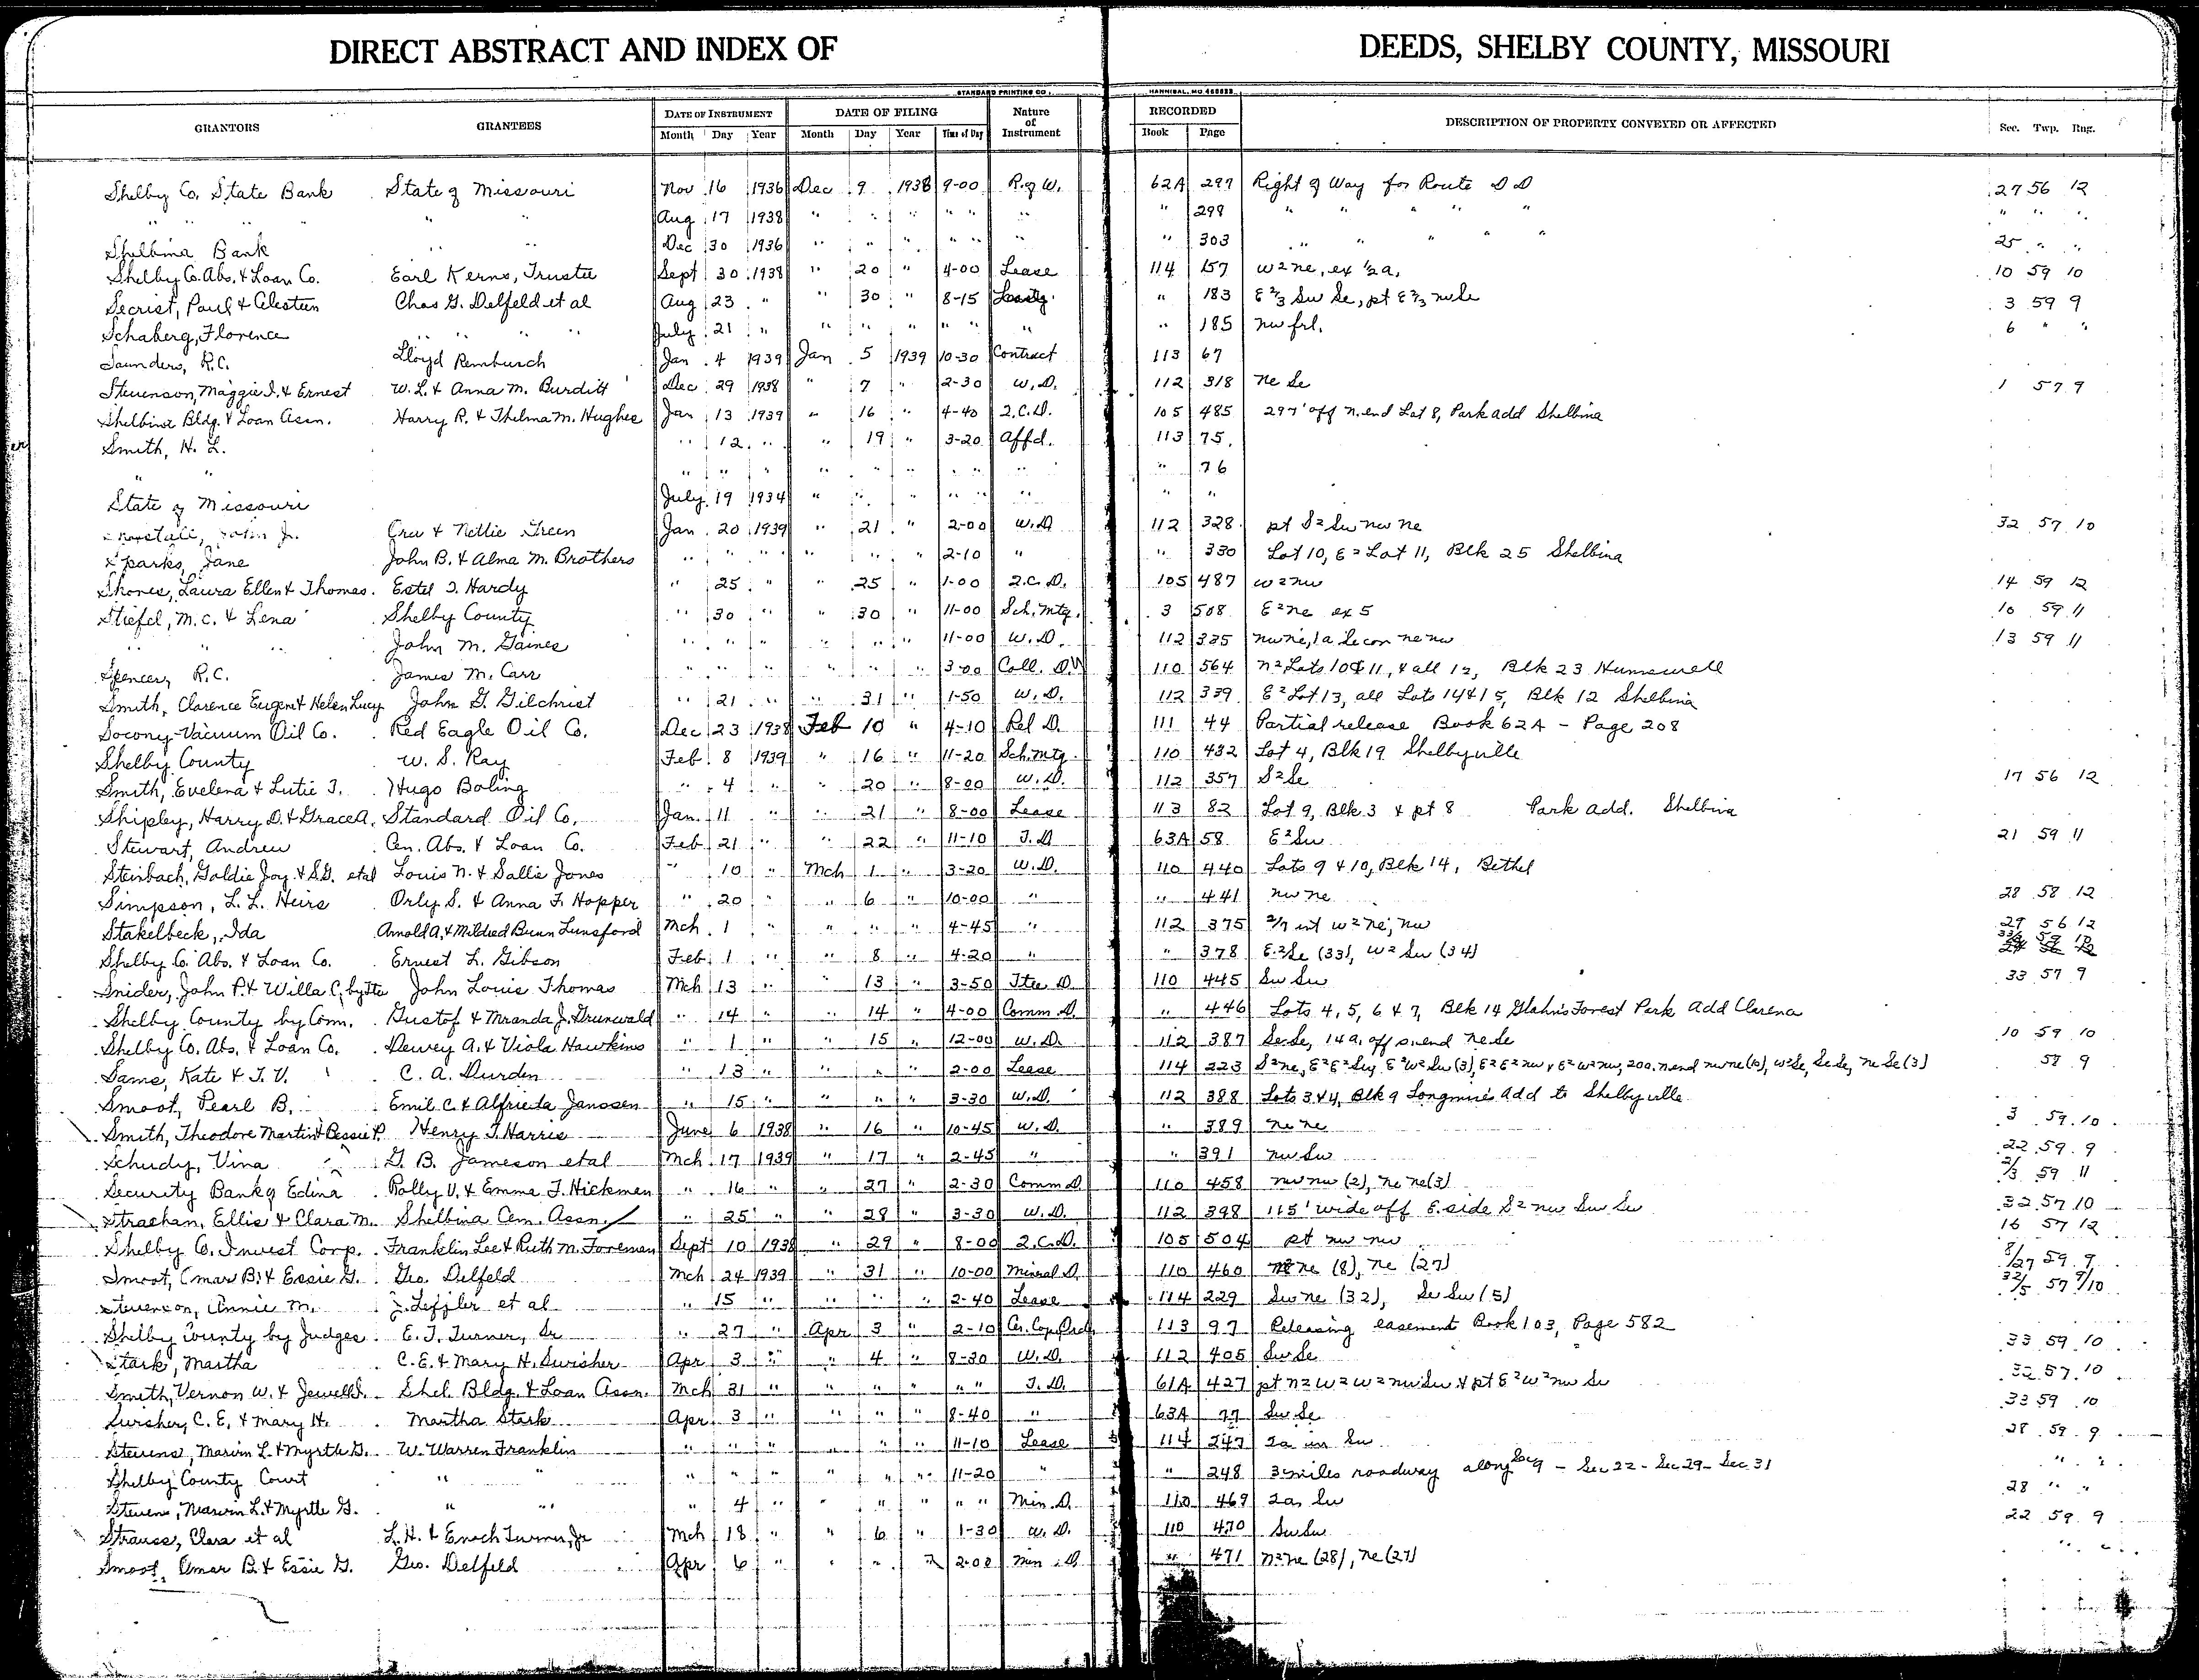 DIRECT ABSTRACT AND INDEX OF DEEDS, SHELBY COUNTY, MISSOURI
STANDARD PRINTING CO. HANNIBAL, MO
GRANTORS GRANTEES DATE OF INSTRUMENT DATE OF FILING Nature of Instrument RECORDED DESCRIPTION OF PROPERTY CONVEYED OR AFFECTED Sec. Twp. Rng.
Month Day Year Month Day Year Time of Day Book Page
Shelby Co. State Bank State of Missouri Nov 16 1936 Dec 9 1938 9-00 R. of W. 62A 297 Right of Way for Route D D 27 56 12
" " " " " " Aug 17 1938 " " " " " " " 298 " " " " " " " "
Shelbina Bank " " Dec 30 1936 " " " " " " " 303 " " " " " 25 " "
Shelby Co. Abs. & Loan Co. Earl Kerns, Trustee Sept 30 1938 " 20 " 4-00 Lease 114 157 W2 ne, ex 1/2 a. 10 59 10
Secrist, Paul & Celesteen Chas G. Delfeld et al Aug 23 " " 30 " 8-15 " 183 E 2/3 Sw Se, pt E 2/3 nw Se 3 59 9
Schaberg, Florence " " " " July 21 " " " " " " " " 185 nw frl. 6 " "
Saunders, R.C. Lloyd Remburch Jan 4 1939 Jan 5 1939 10-30 Contract 113 67
Stevenson, Maggie I. & Ernest W. L. & Anna M. Burditt Dec 29 1938 " 7 " 2-30 W. D. 112 318 ne Se 1 57 9
Shelbina Bldg. & Loan Assn. Harry R. & Thelma M. Hughes Jan 13 1939 " 16 " 4-40 2.C.D. 105 485 297' off n. end Lot 8, Park add Shelbina
Smith, H. L. " 12 " " 19 " 3-20 Affd. 113 75
" " " " " " " " " " " " 76
State of Missouri July 19 1934 " " " " " " " "
John J. & Nettie Green Jan 20 1939 " 21 " 2-00 W. D 112 328 pt S2 Sw nw ne 32 57 10
Sparks, Jane John B. & Alma M. Brothers " " " " " " 2-10 " " 330 Lot 10, E2 Lot 11, Blk 25 Shelbina
Shones, Laura Ellen & Thomas Estel I. Hardy " 25 " " 25 " 1-00 2.C. D. 105 487 W2 nw 14 59 12
Stiefel, M. C. & Lena Shelby County " 30 " " 30 " 11-00 Sch. Mtg. 3 508 E2 ne ex 5 10 59 11
" " " John M. Gaines " " " " " " 11-00 W. D. 112 335 nw ne, 1 a Se cor ne nw 13 59 11
Spencer, R.C. James M. Carr " " " " " " 3-00 Coll. D. 110 564 n2 Lots 10 & 11, & all 12, Blk 23 Hunnewell
Smith, Clarence Eugene & Helen Lucy John G. Gilchrist " 21 " " 31 " 1-50 W. D. 112 339 E2 Lot 13, all Lots 14 & 15, Blk 12 Shelbina
Socony-Vacuum Oil Co. Red Eagle Oil Co. Dec 23 1938 Feb 10 " 4-10 Rel D. 111 44 Partial release Book 62A - Page 208
Shelby County W. S. Ray Feb 8 1939 " 16 " 11-20 Sch. Mtg. 110 432 Lot 4, Blk 19 Shelbyville
Smith, Evelena & Lutie I. Hugo Boling " 4 " " 20 " 8-00 W. D. 112 357 S2 Se 17 56 12
Shipley, Harry D. & Grace A. Standard Oil Co. Jan. 11 " " 21 " 8-00 Lease 113 82 Lot 9, Blk 3 & pt 8 Park add. Shelbina
Stewart, Andrew Cen. Abs. & Loan Co. Feb 21 " " 22 " 11-10 T. D 63A 58 E2 Sw 21 59 11
Steinbach, Goldie Joy & S.G. etal Louis N. & Sallie Jones " 10 " Mch 1 " 3-20 W. D. 110 440 Lots 9 & 10, Blk 14, Bethel
Simpson, L. L. Heirs Orly S. & Anna F. Hopper " 20 " " 6 " 10-00 " " 441 nw ne 28 58 12
Stakelbeck, Ida Arnold A. & Mildred Bunn Lunsford Mch 1 " " " " 4-45 " 112 375 2/7 int W2 ne; nw 29 56 12
Shelby Co. Abs. & Loan Co. Ernest L. Gibson Feb. 1 " " 8 " 4-20 " " 378 E2 Se (33), W2 Sw (34)
Snider, John P. & Willa C. by Tte John Louis Thomas Mch 13 " " 13 " 3-50 Ttee D. 110 445 Sw Sw 33 57 9
Shelby County by Com. Gustof & Mranda J. Grunwald " 14 " " 14 " 4-00 Comm D. " 446 Lots 4, 5, 6 & 7, Blk 14 Glahn's Forest Park Add Clarena
Shelby Co. Abs. & Loan Co. Dewey A. & Viola Hawkins " 1 " " 15 " 12-00 W. D. 112 387 Se Se, 14 a. off s. end ne Se 10 59 10
Sams, Kate & T. V. C. A. Durden " 13 " " " " 2-00 Lease 114 223 S2 ne, E2 E2 Sw, E2 W2 Sw (3), E2 E2 nw & E2 W2 nw, 20a. n end nw ne (10), W2 Se, Se Se, ne Se (3) 58 9
Smoot, Pearl B. Emil C. & Alfrieda Janssen " 15 " " " " 3-30 W. D. 112 388 Lots 3 & 4, Blk 9 Longmire's Add to Shelbyville
Smith, Theodore Martin & Bessie P. Henry T. Harris June 6 1938 " 16 " 10-45 W. D. " 389 ne ne 3 59 10
Schudy, Vina G. B. Jameson etal Mch 17 1939 " 17 " 2-45 " " 391 nw Sw 22 59 9
Security Bank of Edina Rolly V. & Emma F. Hickman " 16 " " 27 " 2-30 Comm D. 110 458 nw nw (2), ne ne (3) 2/3 59 11
Strachan, Ellis & Clara M. Shelbina Cem. Assn. " 25 " " 28 " 3-30 W. D. 112 398 115' wide off E. side S2 nw Sw Sw 32 57 10
Shelby Co. Invest Corp. Franklin Lee & Ruth M. Foreman Sept 10 1938 " 29 " 8-00 2.C.D. 105 504 pt nw nw 16 57 12
Smoot, Omar B. & Essie G. Geo. Delfeld Mch 24 1939 " 31 " 10-00 Mineral D. 110 460 ne (8), ne (27) 8/27 59 9
Stevenson, Annie M. J. Leffler et al " 15 " " " " 2-40 Lease 114 229 Sw ne (32), Se Sw (5) 32/5 57 9/10
Shelby County by Judges E. T. Turner, Sr " 27 " Apr 3 " 2-10 113 97 Releasing easement Book 103, Page 582
Stark, Martha C. E. & Mary H. Swisher Apr 3 " " 4 " 8-30 W. D. 112 405 Sw Se 33 59 10
Smith, Vernon W. & Jewell Shel. Bldg. & Loan Assn. Mch 31 " " " " " " T. D. 61A 427 pt n2 W2 W2 nw Sw & pt E2 W2 nw Sw 32 57 10
C. E. & Mary H. Martha Stark Apr 3 " " " " 8-40 " 63A 77 Sw Se 33 59 10
Stevens, Marvin L. & Myrtle G. W. Warren Franklin " " " " " " 11-10 Lease 114 247 2a in Sw 28 59 9
Shelby County Court " " " " " " " " 11-20 " " 248 3 miles roadway along Sec 9 - Sec 22 - Sec 29 - Sec 31 " " "
Stevens, Marvin L. & Myrtle G. " " " 4 " " " " " " Min. D. 110 469 2a, Sw 28 " "
Strauss, Clara et al L. H. & Enoch Turner, Jr Mch 18 " " 6 " 1-30 W. D. 110 470 Sw Sw 22 59 9
Smoot, Omar B. & Essie G. Geo. Delfeld Apr 6 " " " " 2-00 Min. D " 471 n2 ne (28), ne (27) " " "